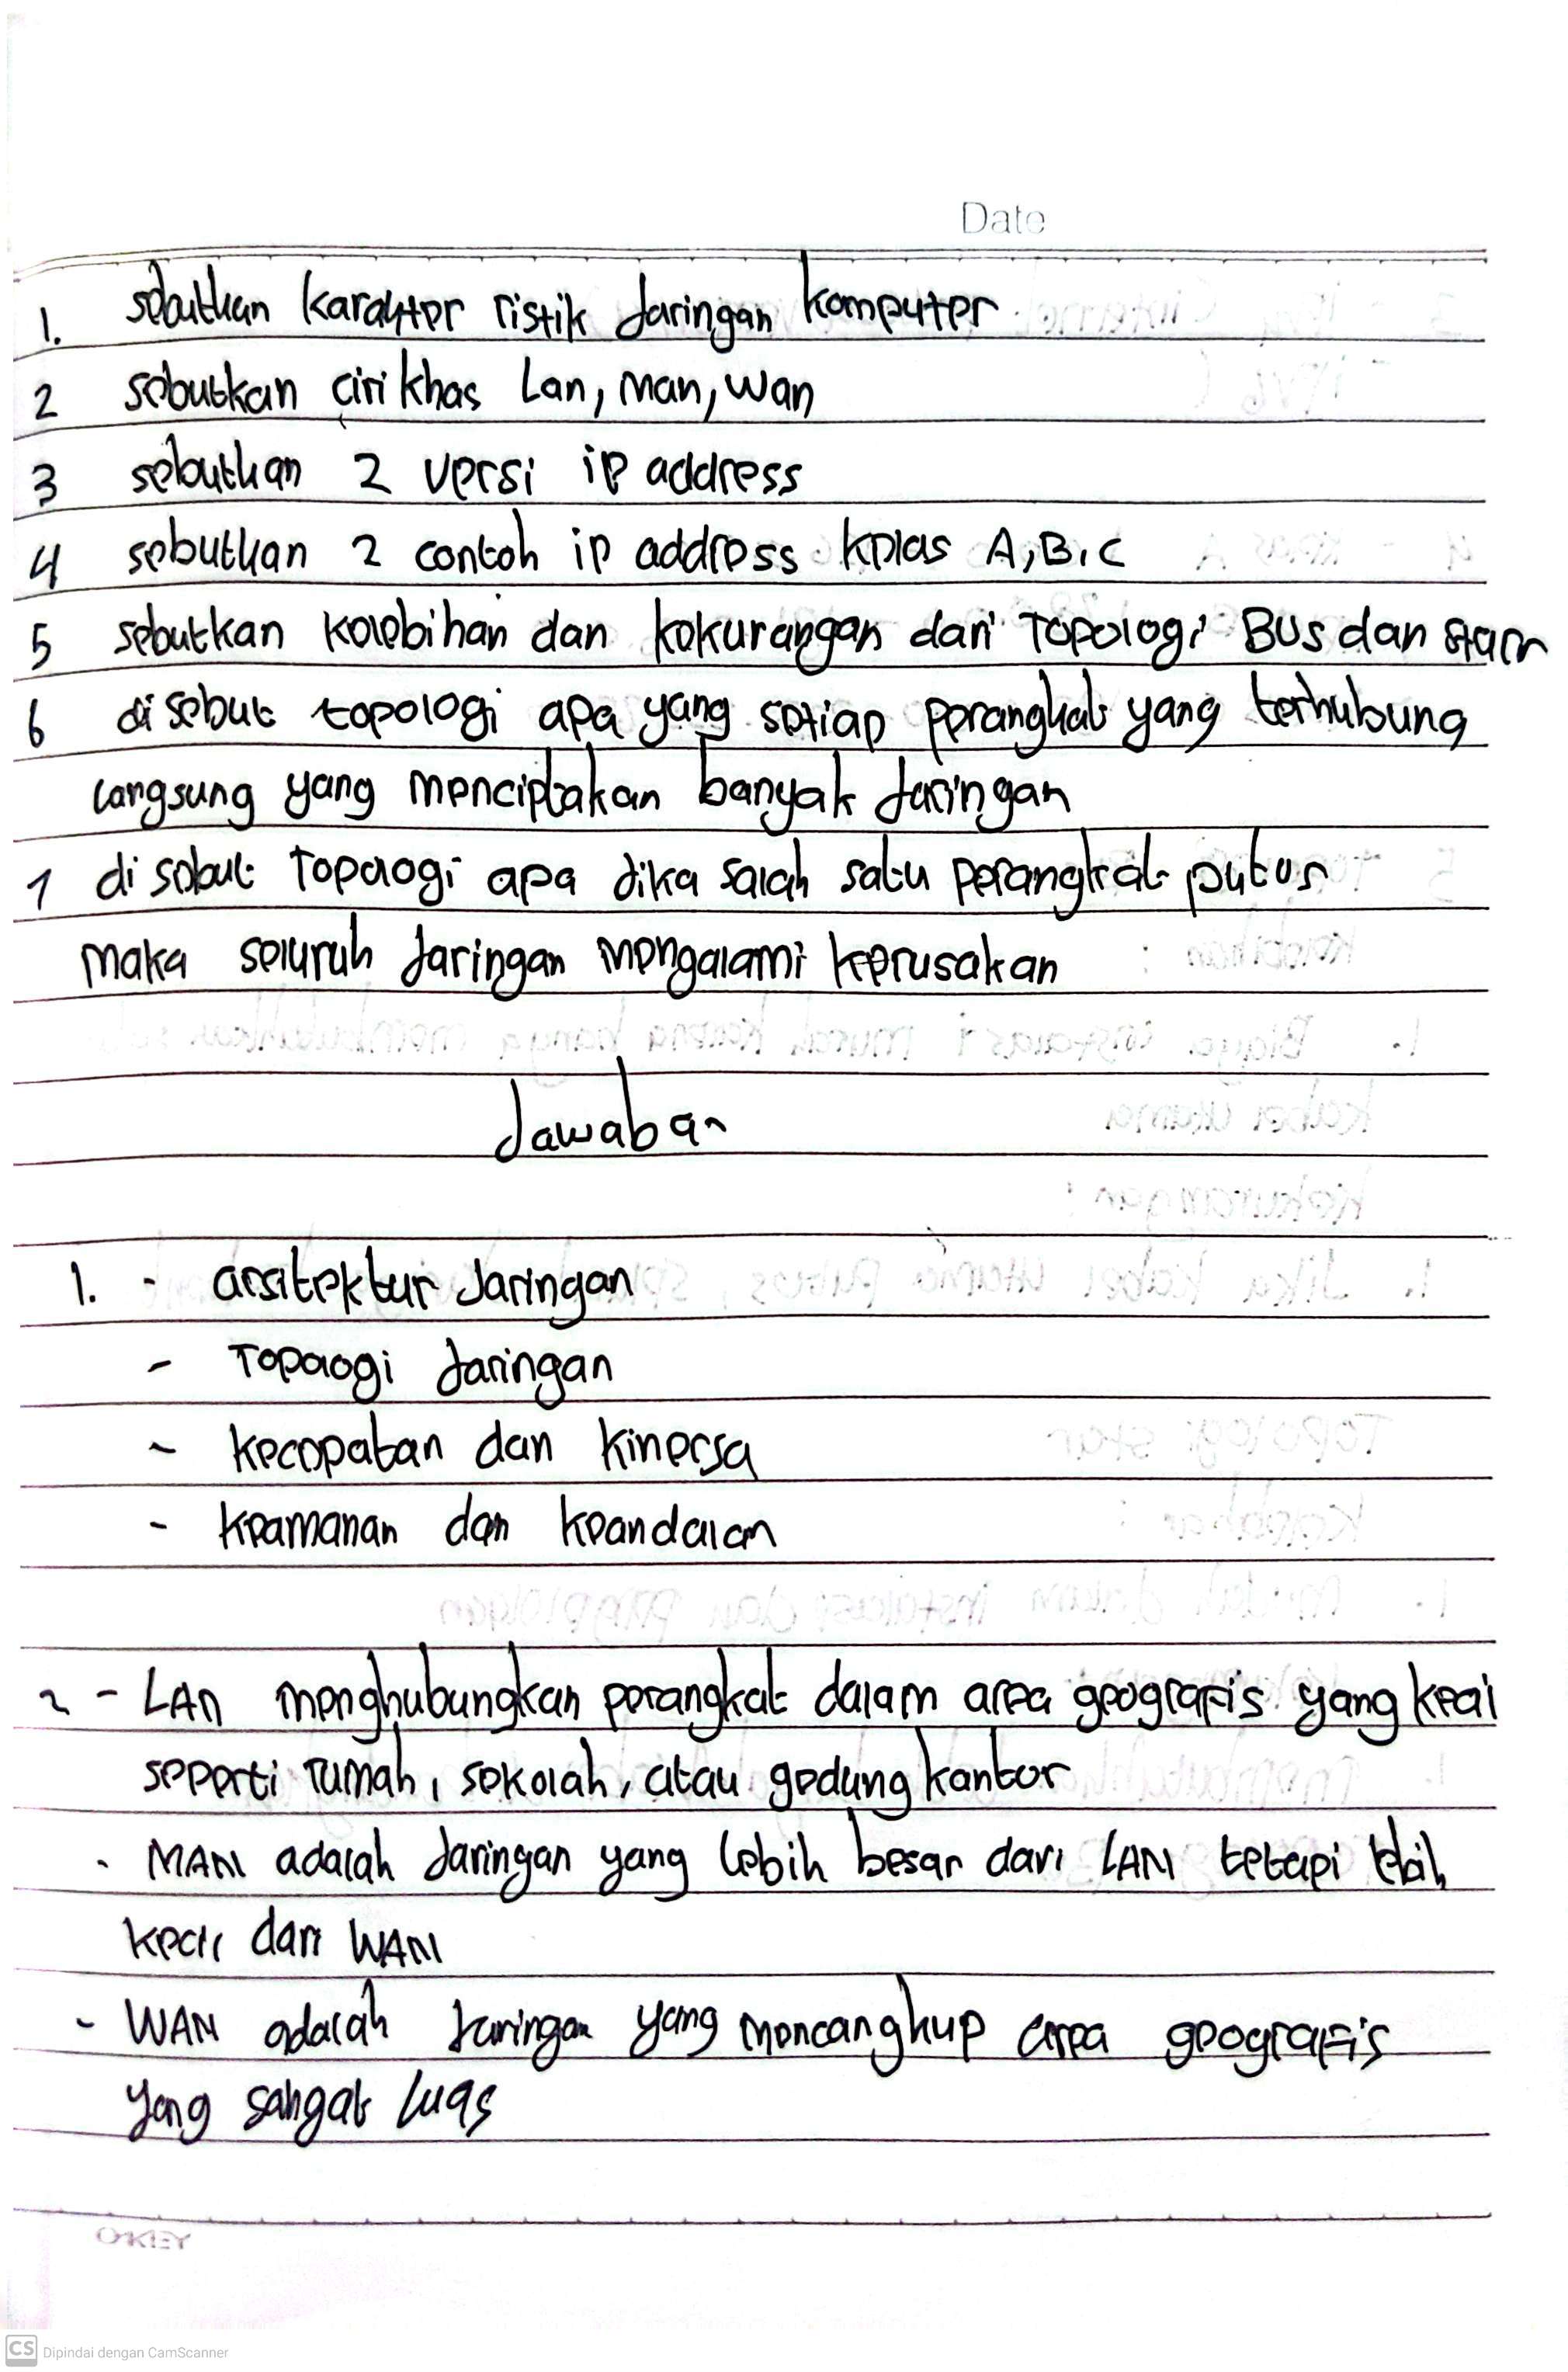 Date
1. sebutkan karakter ristik Jaringan komputer
2 sebutkan ciri khas Lan, Man, Wan
3 sebutkan 2 versi ip address
4 sebutkan 2 contoh ip address kelas A, B, C
5 sebutkan kelebihan dan kekurangan dari Topologi Bus dan starr
6 di sebut topologi apa yang setiap perangkat yang terhubung
langsung yang menciptakan banyak Jaringan
7 di sebut Topologi apa Jika salah satu perangkat putus
maka seluruh Jaringan mengalami kerusakan
Jawaban
1. - arsitektur Jaringan
- Topologi Jaringan
- kecepatan dan kinerja
- keamanan dan keandalan
2 - LAN menghubungkan perangkat dalam area geografis yang kecil
seperti rumah, sekolah, atau gedung kantor
- MAN adalah Jaringan yang lebih besar dari LAN tetapi lebih
kecil dari WAN
- WAN adalah Jaringan yang mencangkup area geografis
yang sangat luas
OKEY
CS Dipindai dengan CamScanner